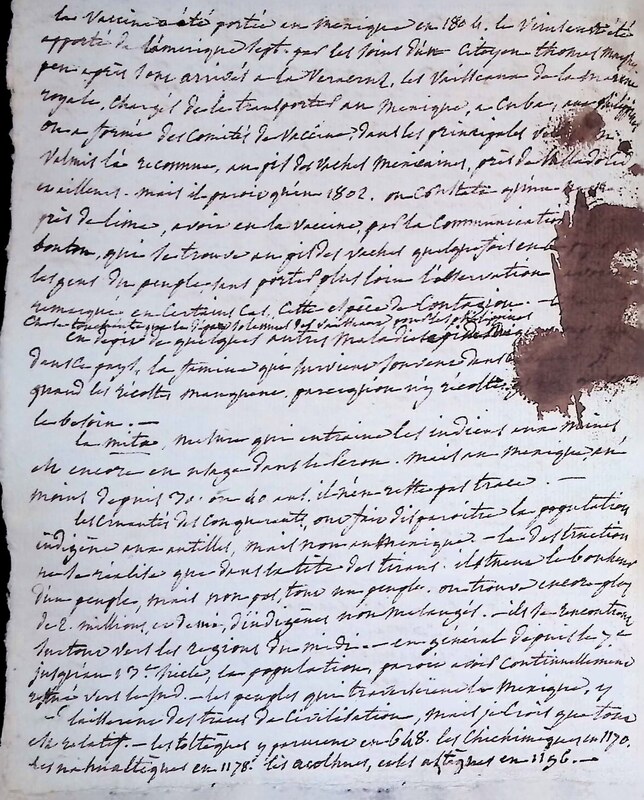 la Vaccine a été portée en mexique en 1804. le
apporté de l'amérique sept. par les soins d'un Citoyen thomas
peu après sont arrivés a la Veracruz, les Vaisseaux de la marine
royale, chargés de la transporter au mexique, a Cuba, aux
on a formé des Comités de Vaccine, dans les principales
l'a reconnue, au pis des Vaches mexicaines, près de Valladolid
et ailleurs. mais il paroit qu'en 1802. on Constata qu'une
près de lima, avoir eu la Vaccine, par la Communication
bouton, qui se trouve au pis des Vaches quelquefois
les gens du peuple sans porter plus loin l'observation
remarqué en certains Cas, cette espèce de Contagion. —
en dépit de quelques autres maladies
dans ce pays, la famine qui survient souvent dans
quand les récoltes manquent. parcequ'on n'y récolte
le besoin. —
la mita, mesure qui entraine les indiens aux mines
est encore en usage dans le Perou. mais au mexique,
moins depuis 30. ou 40 ans, il n'en reste pas trace. —
les cruautés des conquerants, ont fait disparoitre la population
indigène aux antilles, mais non au Mexique. — la destruction
ne se réalise que dans la tête des tirans. ils tuent le bonheur
d'un peuple, mais non pas, tout un peuple. on trouve encore plus
de 2. millions, et demi, d'indigènes non melangés. — ils se rencontrent
surtout vers les regions du midi. — en général depuis le 7.e
jusqu'au 13.e siècle, la population, paroit avoir Continuellement
reflué vers le sud. — les peuples qui traversèrent le Mexique, y
laissèrent des traces de Civilisation, mais je crois que tout
est relatif. — les toltèques y parurent en 648. les Chichimèques en 1170.
les nahualtèques en 1178. les acolhues, et les aztèques en 1196. —